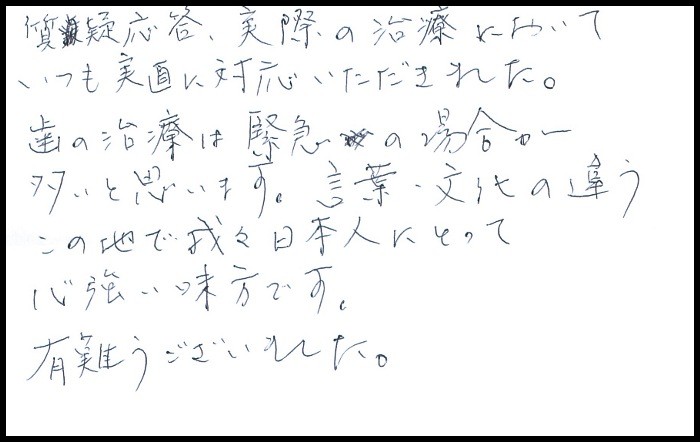 質疑応答、実際の治療において
いつも実直に対応いただきました。
歯の治療は緊急の場合が
多いと思います。言葉・文化の違う
この地で我々日本人にとって
心強い味方です。
有難うございました。